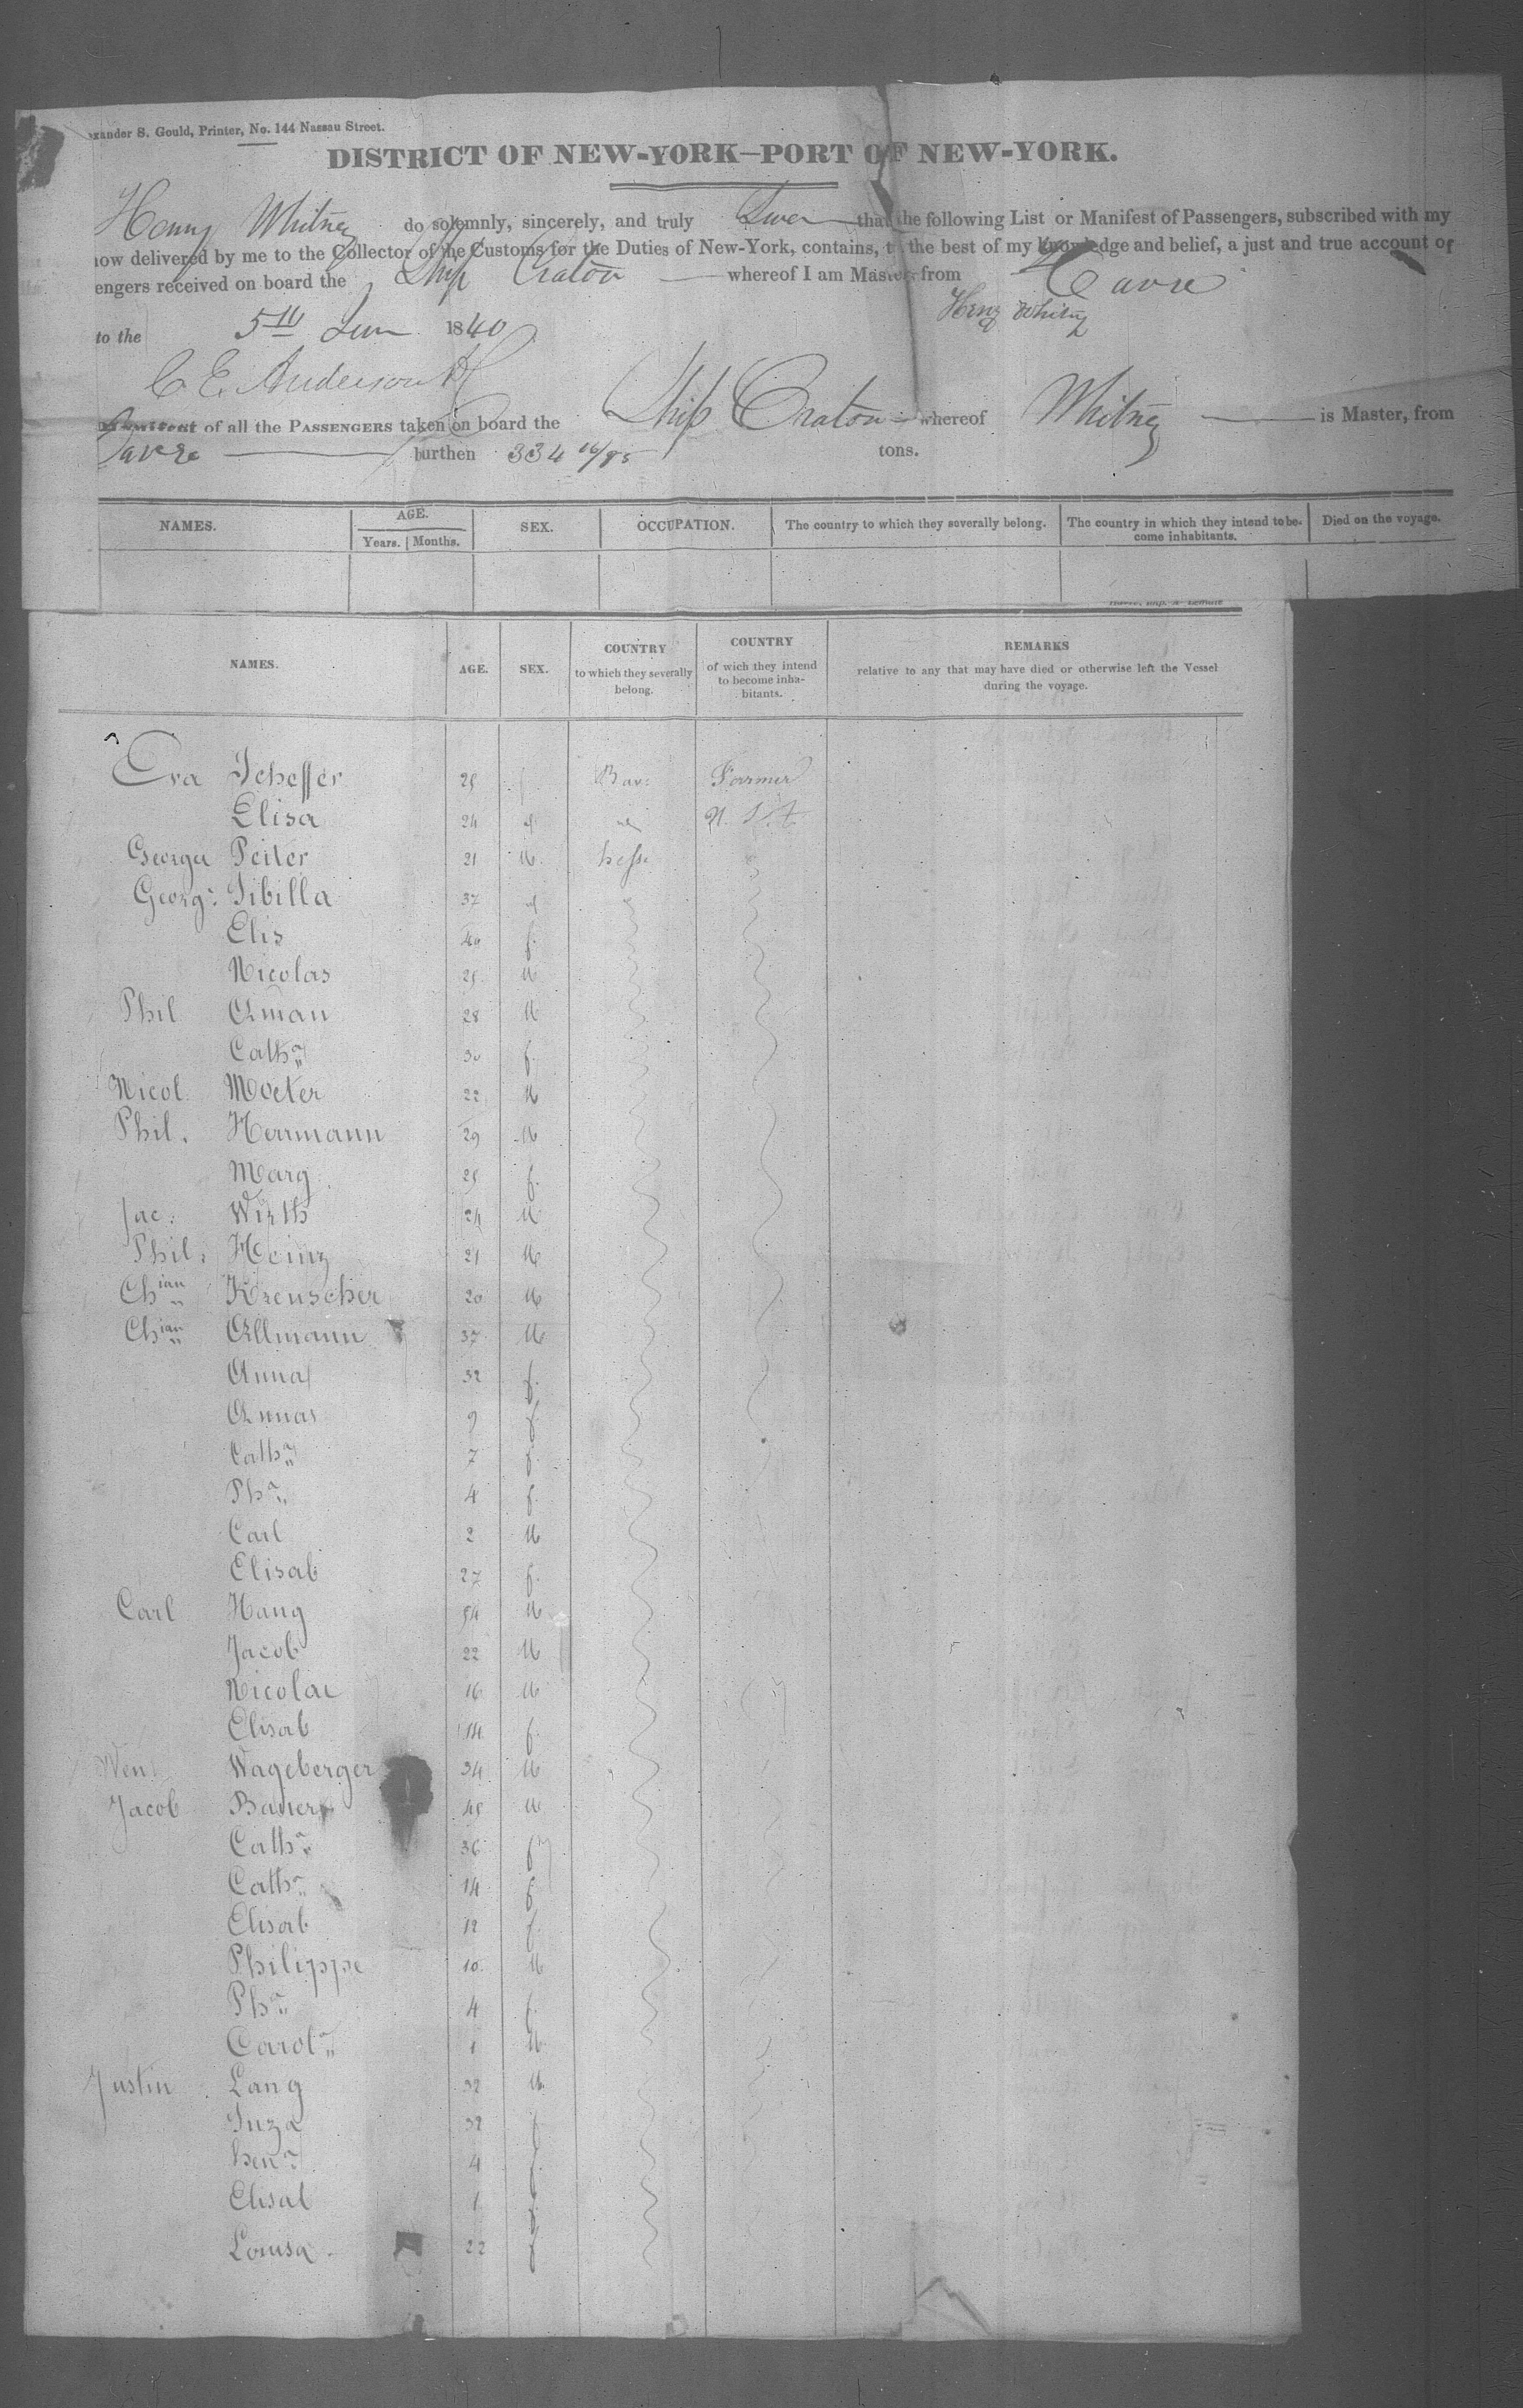 exander S. Gould, Printer, No. 144 Nassau Street.
DISTRICT OF NEW-YORK—PORT OF NEW-YORK.
Henry Whitney do solemnly, sincerely, and truly Swear that the following List or Manifest of Passengers, subscribed with my
now delivered by me to the Collector of the Customs for the Duties of New-York, contains, to the best of my knowledge and belief, a just and true account of
engers received on board the Ship Craton whereof I am Master, from Havre
to the 5th 1840 Heny Whitny
C E Anderson
of all the PASSENGERS taken on board the Ship Craton whereof Whitney is Master, from
Havre burthen 334 16/95 tons.
NAMES. AGE. Years. Months. SEX. OCCUPATION. The country to which they severally belong. The country in which they intend to become inhabitants. Died on the voyage.
NAMES. AGE. SEX. COUNTRY to which they severally belong. COUNTRY of wich they intend to become inhabitants. REMARKS relative to any that may have died or otherwise left the Vessel during the voyage.
Eva Scheffer 25 f Bav: Farmer
Elisa 24
George Peiler 21 M. hesse
Georg: Sibilla 37
Elis 40 f.
Nicolas 25 M
Phil Aman 28 M
Cath:a 30 f.
Nicol. Moeker 22 M
Phil. Herrmann 29 M
Marg 25 f.
Jac: Wirth 24 M
Phil. Heinz 21 M
Chian Kreuscher 20 M
Chian Allmann 37 M
Anna 32 f.
Anna 9 f
Cath:a 7 f.
Ph:a 4 f.
Carl 2 M
Elisab 27 f.
Carl Haug 54 M
Jacob 22 M
Nicolai 16 M
Elisab 14 f.
Wen. Wageberger 34 M
Jacob Bauer 45 M
Cath:a 36 f
Cath:a 14 f
Elisab 12 f.
Philippe 10 M
Ph:a 4 f.
Carol:a 1 M
Justin Lang 32 M.
Suza 32 f
hen:a 4 f
Elisab 1 f
Louisa 22 f